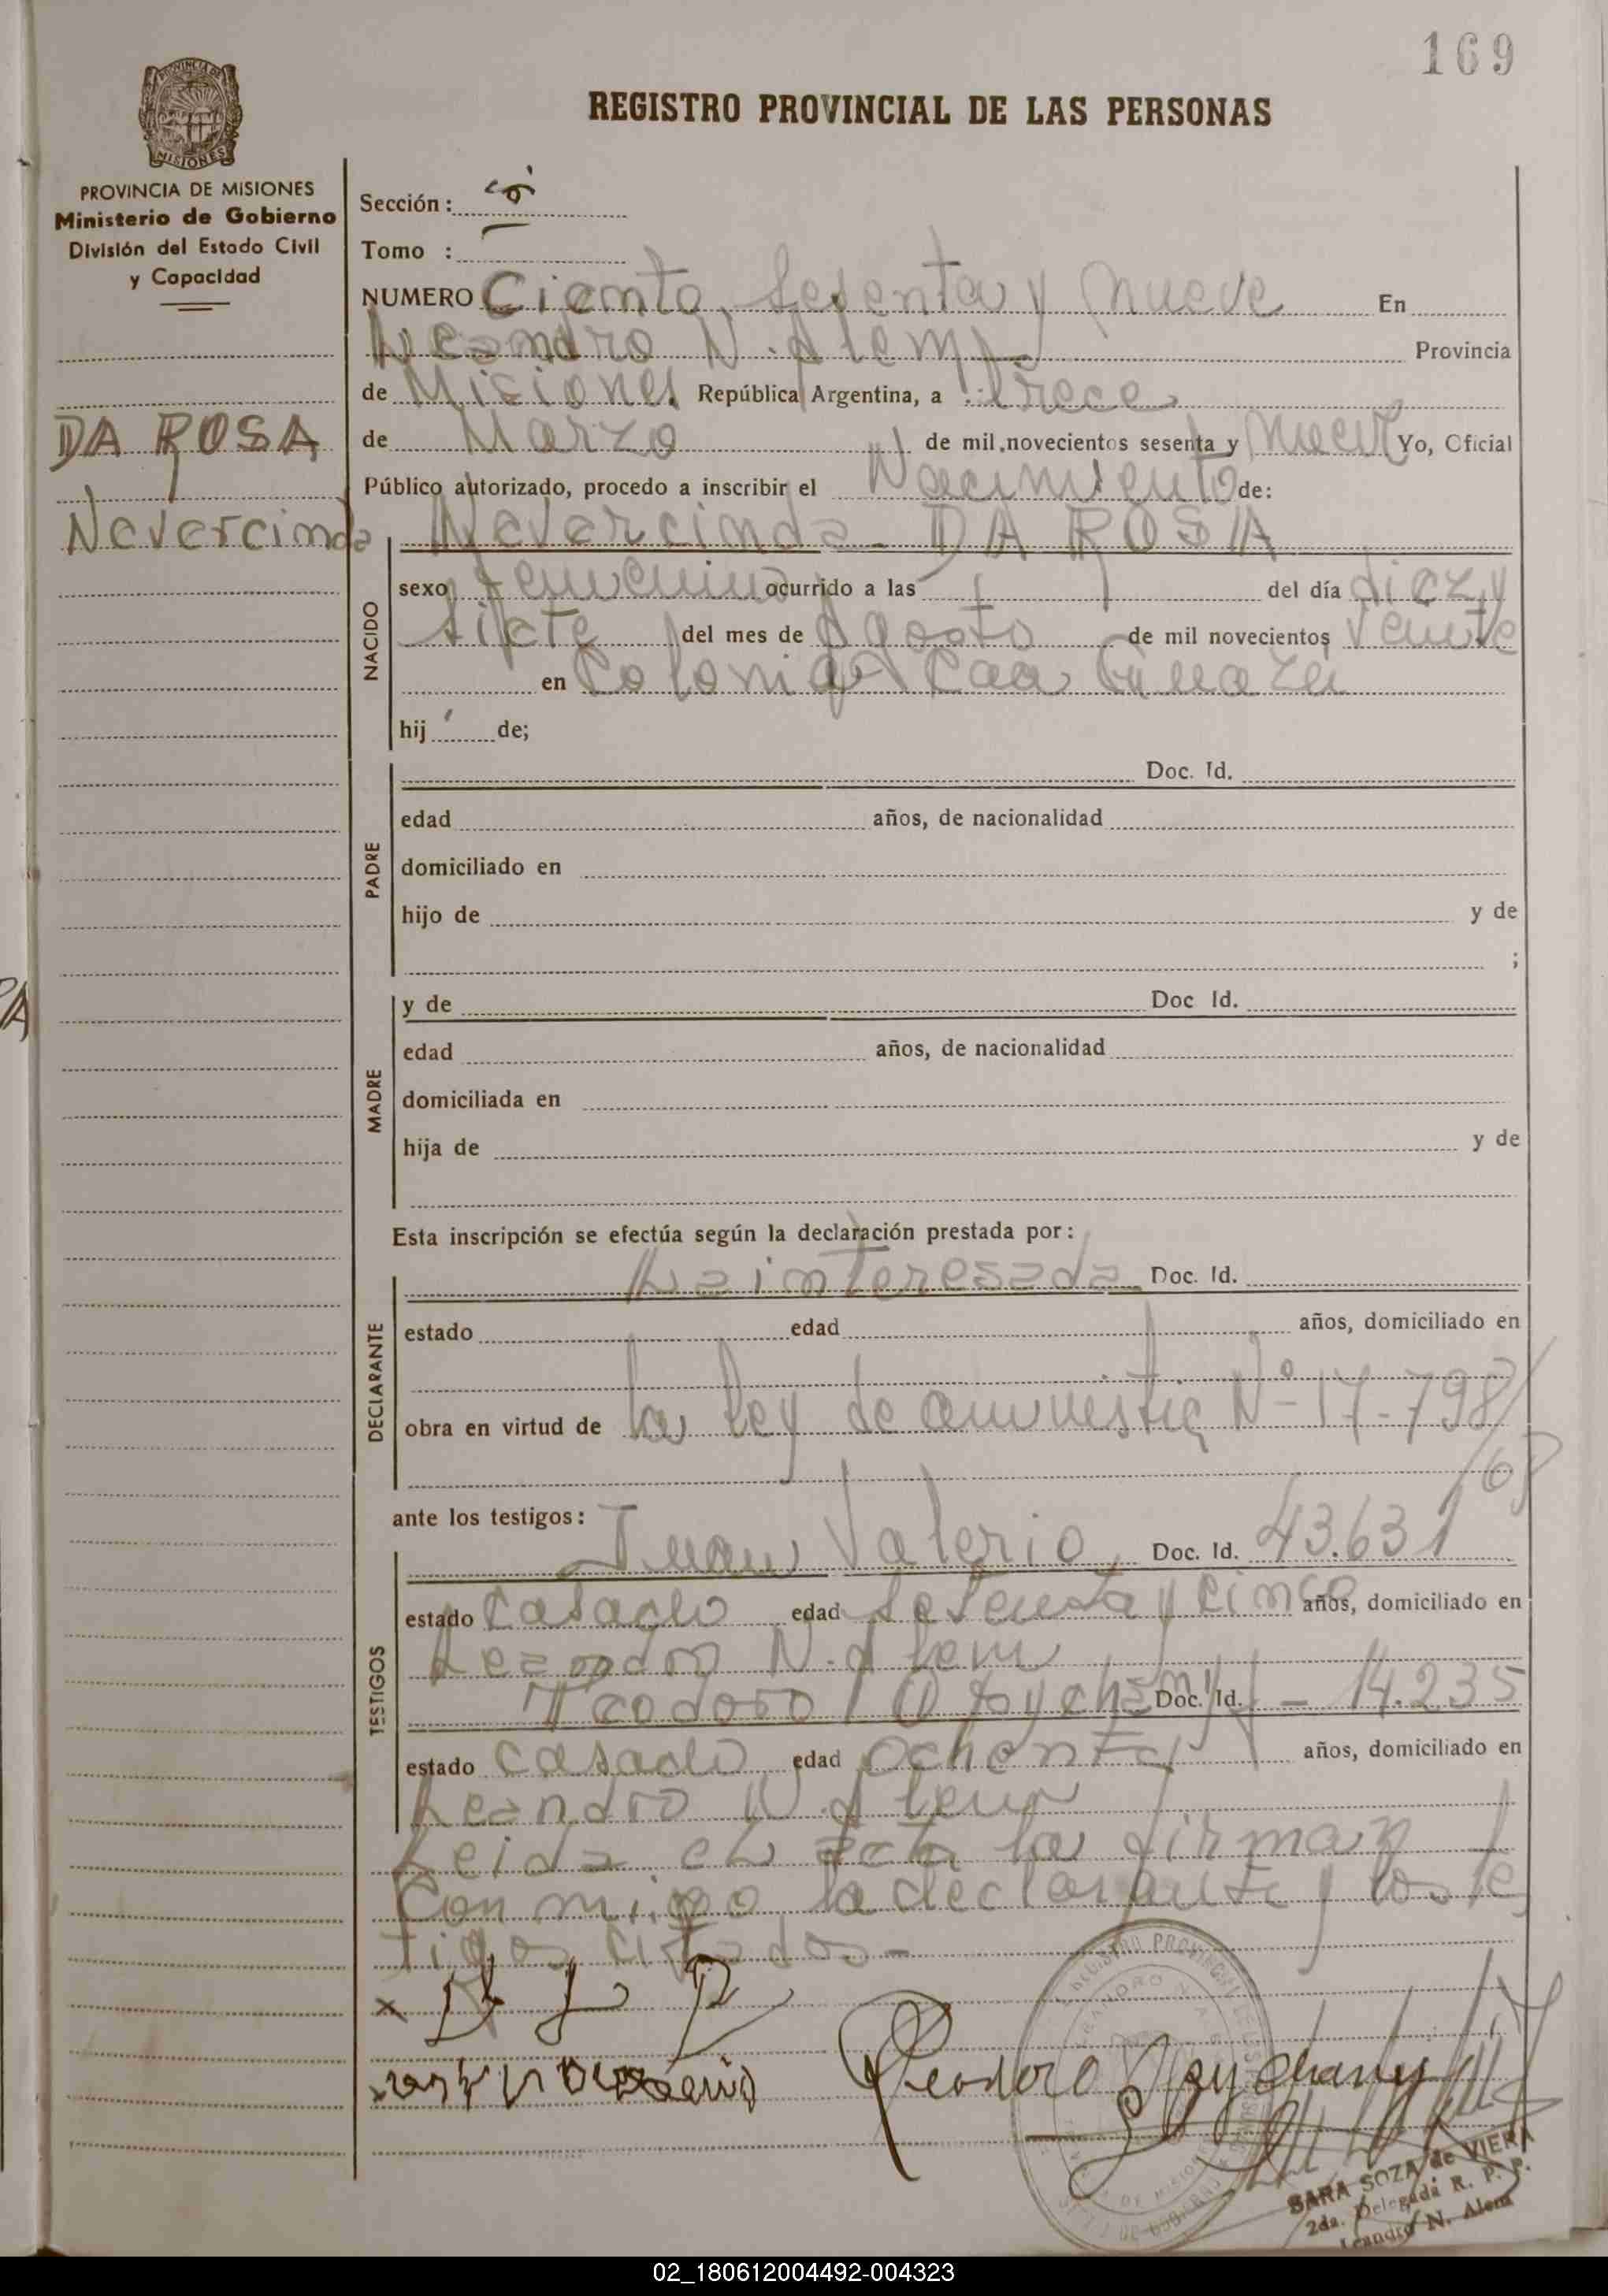 169
REGISTRO PROVINCIAL DE LAS PERSONAS
PROVINCIA DE MISIONES
Ministerio de Gobierno
División del Estado Civil
y Capacidad
Sección:
Tomo :
NUMERO Ciento Sesenta y nueve En
Leandro N. Alem Provincia
de Misiones República Argentina, a trece
DA ROSA
de Marzo de mil novecientos sesenta y nueve Yo, Oficial
Público autorizado, procedo a inscribir el Nacimiento de:
Nevercinda
Nevercinda - DA ROSA
NACIDO
sexo femenino ocurrido a las del día diez y
siete del mes de Agosto de mil novecientos veinte
en Colonia Caa Guazu
hij de;
PADRE
Doc. Id.
edad años, de nacionalidad
domiciliado en
hijo de y de
;
MADRE
y de Doc Id.
edad años, de nacionalidad
domiciliada en
hija de y de
Esta inscripción se efectúa según la declaración prestada por:
DECLARANTE
La interesada Doc. Id.
estado edad años, domiciliado en
obra en virtud de la ley de amnestia Nº 17-798/
/68
ante los testigos:
TESTIGOS
Juan Valerio Doc. Id. 43.631
estado Casado edad setenta y cinco años, domiciliado en
Leandro N. Alem
Teodoro Doc. Id. - 14.235
estado casado edad ochenta años, domiciliado en
Leandro N. Alem
Leida el acta la firman
con migo la declarante y los tes
tigos citados -
SARA SOZA de VIERA
2da. Delegada R. P. P.
Leandro N. Alem
02_180612004492-004323